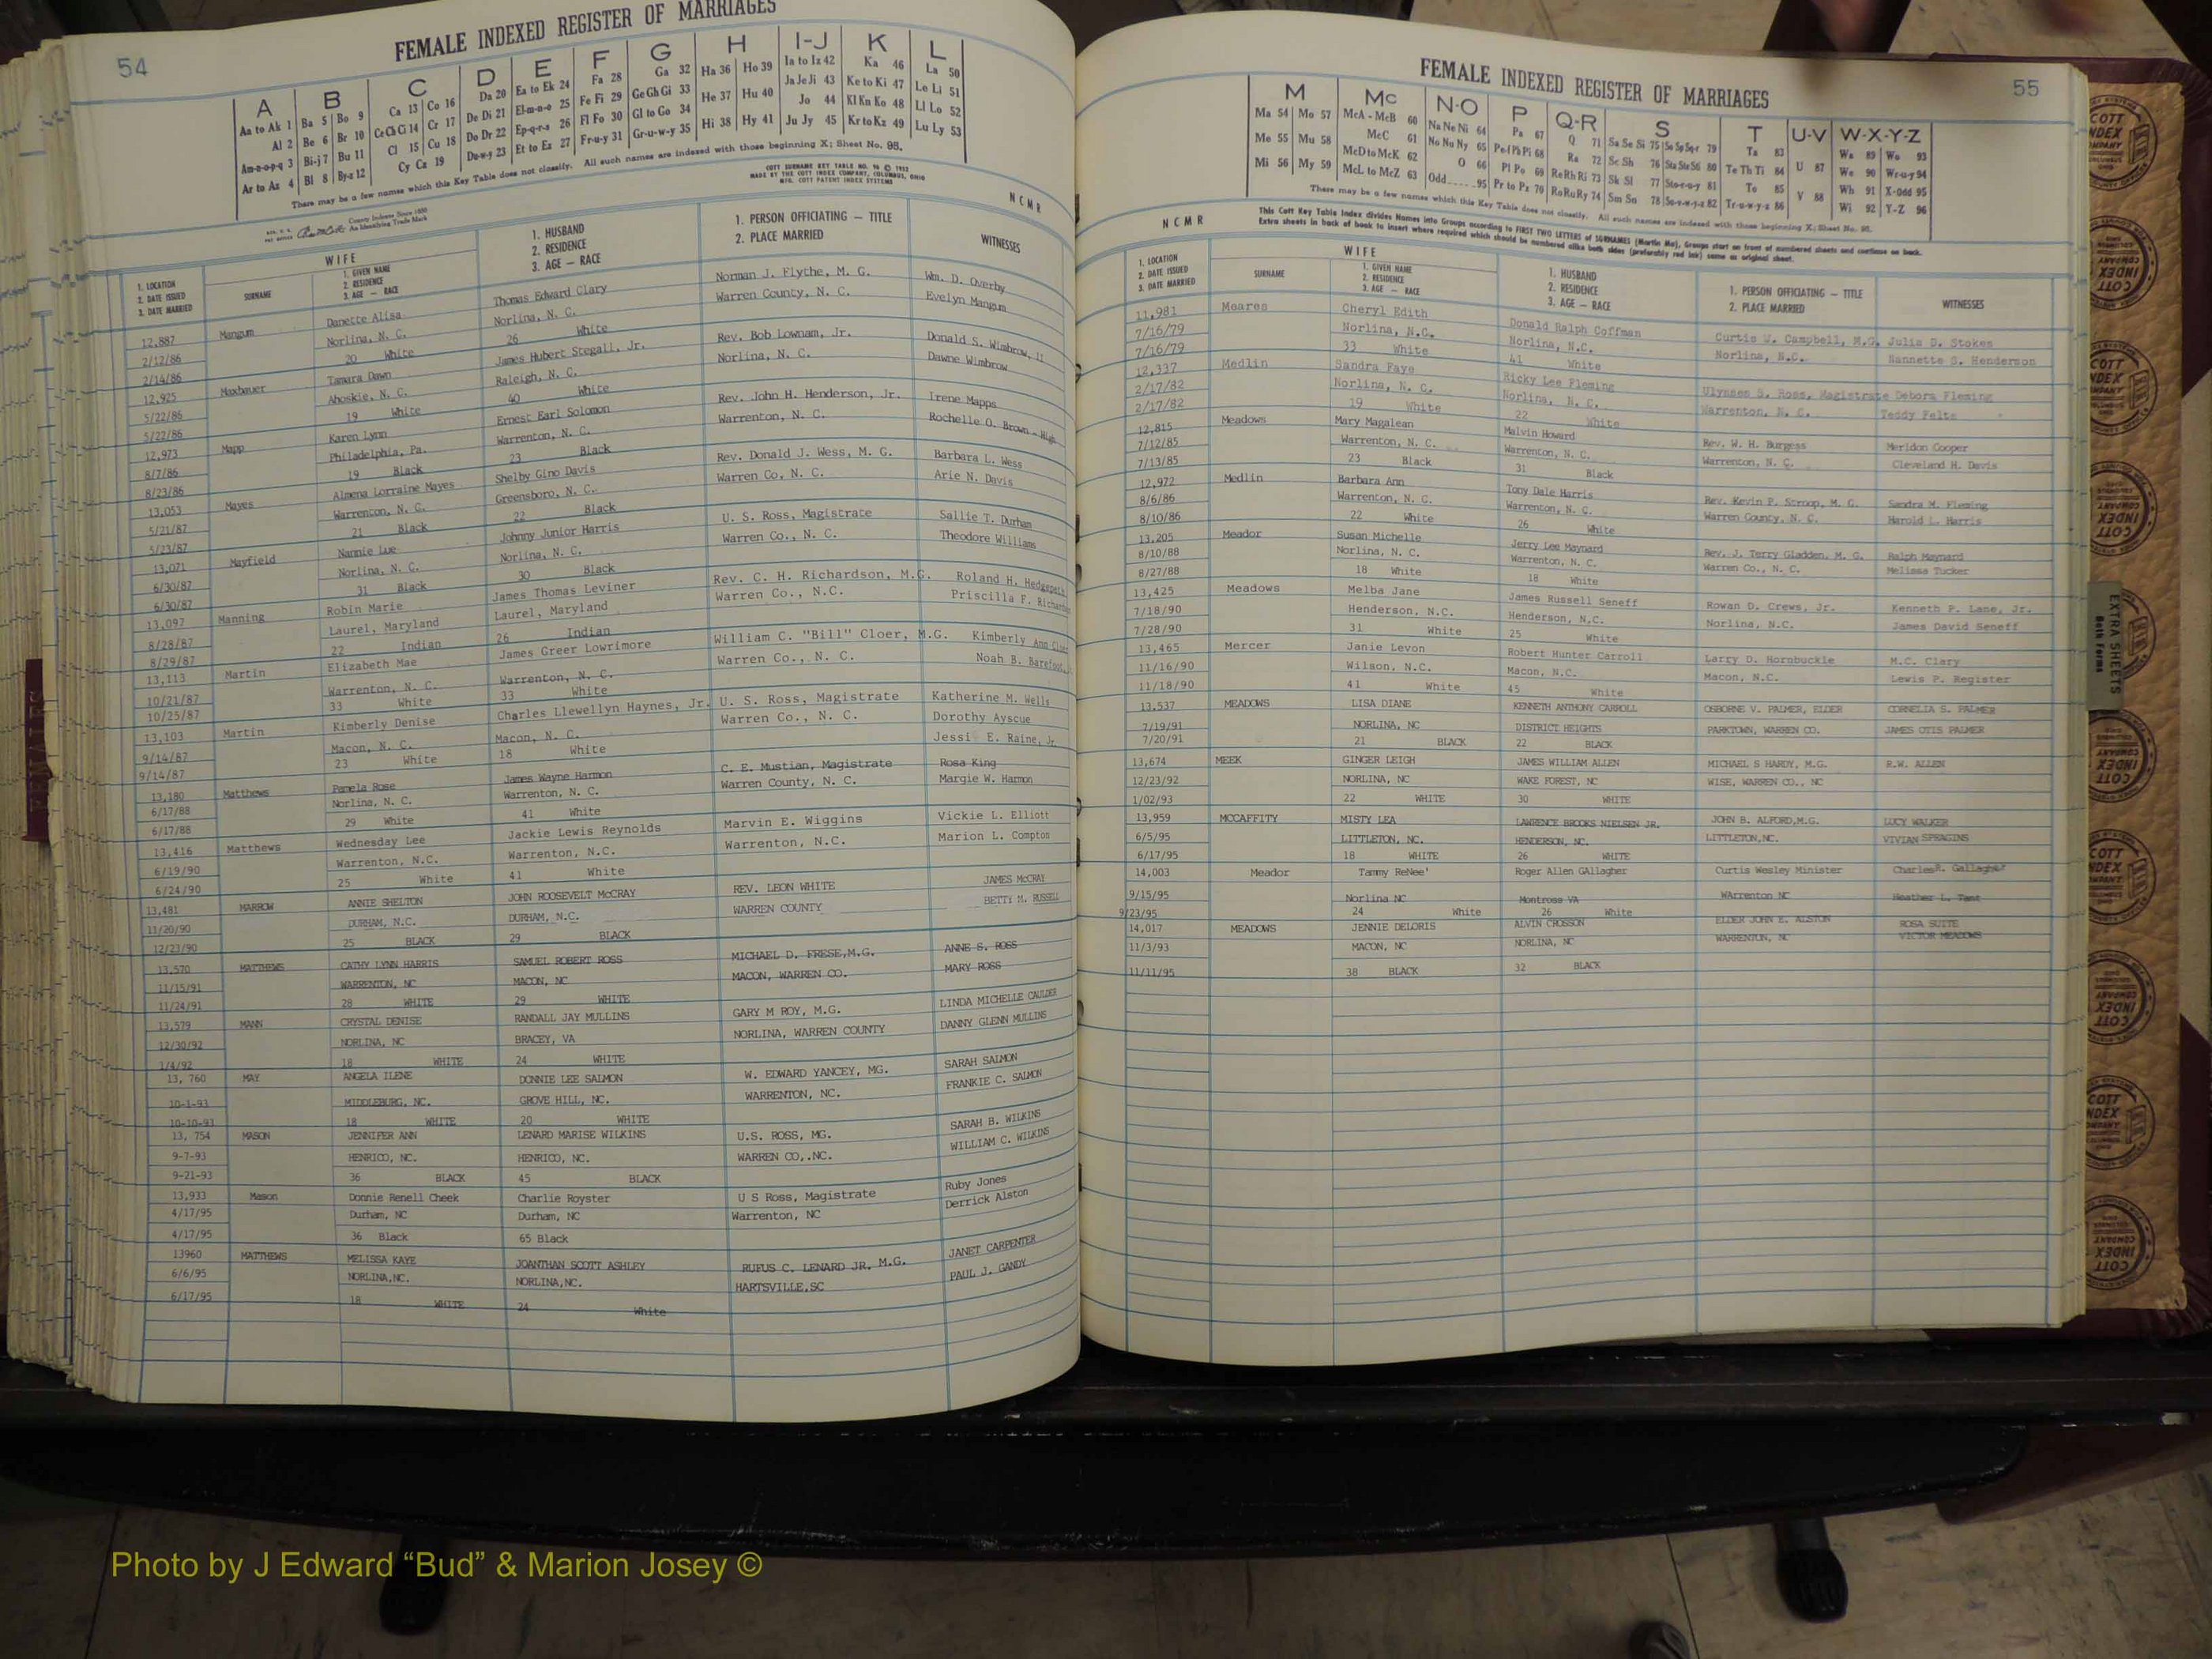 54
FEMALE INDEXED REGISTER OF MARRIAGES
A B C D E F G H I-J K L
Aa to Ak 1 Ba 5 Bo 9 Ca 13 Co 16 Da 20 Ea to Ek 24 Fa 28 Ga 32 Ha 36 Ho 39 Ia to Iz 42 Ka 46 La 50
Al 2 Be 6 Br 10 Ce Ch Ci 14 Cr 17 De Di 21 El-m-n-o 25 Fe Fi 29 Ge Gh Gi 33 He 37 Hu 40 Ja Je Ji 43 Ke to Ki 47 Le Li 51
Am-n-o-p-q 3 Bi-j 7 Bu 11 Cl 15 Cu 18 Do Dr 22 Ep-q-r-s 26 Fl Fo 30 Gl to Go 34 Hi 38 Hy 41 Jo 44 Kl Kn Ko 48 Ll Lo 52
Ar to Az 4 Bl 8 By-z 12 Cy Cz 19 Du-w-y 23 Et to Ez 27 Fr-u-y 31 Gr-u-w-y 35 Ju Jy 45 Kr to Kz 49 Lu Ly 53
There may be a few names which this Key Table does not classify. All such names are indexed with those beginning X; Sheet No. 98.
COTT SURNAME KEY TABLE NO. 96 © 1952
MADE BY THE COTT INDEX COMPANY, COLUMBUS, OHIO
MFG. COTT PATENT INDEX SYSTEMS
County Indexes Since 1888
An Identifying Trade Mark
N C M R
1. LOCATION
2. DATE ISSUED
3. DATE MARRIED
WIFE
SURNAME
1. GIVEN NAME
2. RESIDENCE
3. AGE — RACE
1. HUSBAND
2. RESIDENCE
3. AGE — RACE
1. PERSON OFFICIATING — TITLE
2. PLACE MARRIED
WITNESSES
12,887 Mangum Danette Alisa Thomas Edward Clary Norman J. Flythe, M. G. Wm. D. Overby
2/12/86 Norlina, N. C. Norlina, N. C. Warren County, N. C. Evelyn Mangum
2/14/86 20 White 26 White
12,925 Maxbauer Tamara Dawn James Hubert Stegall, Jr. Rev. Bob Lownam, Jr. Donald S. Wimbrow, II
5/22/86 Ahoskie, N. C. Raleigh, N. C. Norlina, N. C. Dawne Wimbrow
5/22/86 19 White 40 White
12,973 Mapp Karen Lynn Ernest Earl Solomon Rev. John H. Henderson, Jr. Irene Mapps
8/7/86 Philadelphia, Pa. Warrenton, N. C. Warrenton, N. C. Rochelle O. Brown - High
8/23/86 19 Black 23 Black
13,053 Mayes Almena Lorraine Mayes Shelby Gino Davis Rev. Donald J. Wess, M. G. Barbara L. Wess
5/21/87 Warrenton, N. C. Greensboro, N. C. Warren Co, N. C. Arie N. Davis
5/23/87 21 Black 22 Black
13,071 Mayfield Nannie Lue Johnny Junior Harris U. S. Ross, Magistrate Sallie T. Durham
6/30/87 Norlina, N. C. Norlina, N. C. Warren Co., N. C. Theodore Williams
6/30/87 31 Black 30 Black
13,097 Manning Robin Marie James Thomas Leviner Rev. C. H. Richardson, M.G. Roland H. Hedgepeth
8/28/87 Laurel, Maryland Laurel, Maryland Warren Co., N.C. Priscilla F.
8/29/87 22 Indian 26 Indian
13,113 Martin Elizabeth Mae James Greer Lowrimore William C. "Bill" Cloer, M.G. Kimberly Ann
10/21/87 Warrenton, N. C. Warrenton, N. C. Warren Co., N. C. Noah B.
10/25/87 33 White 33 White
13,103 Martin Kimberly Denise Charles Llewellyn Haynes, Jr. U. S. Ross, Magistrate Katherine M. Wells
9/14/87 Macon, N. C. Macon, N. C. Warren Co., N. C. Dorothy Ayscue
9/14/87 23 White 18 White Jessi E. Raine, Jr.
13,180 Matthews Pamela Rose James Wayne Harmon C. E. Mustian, Magistrate Rosa King
6/17/88 Norlina, N. C. Warrenton, N. C. Warren County, N. C. Margie W. Harmon
6/17/88 29 White 41 White
13,416 Matthews Wednesday Lee Jackie Lewis Reynolds Marvin E. Wiggins Vickie L. Elliott
6/19/90 Warrenton, N.C. Warrenton, N.C. Warrenton, N.C. Marion L. Compton
6/24/90 25 White 41 White
13,481 MARROW ANNIE SHELTON JOHN ROOSEVELT McCRAY REV. LEON WHITE JAMES McCRAY
11/20/90 DURHAM, N.C. DURHAM, N.C. WARREN COUNTY BETTY M. RUSSELL
12/23/90 25 BLACK 29 BLACK
13,570 MATTHEWS CATHY LYNN HARRIS SAMUEL ROBERT ROSS MICHAEL D. FRESE,M.G. ANNE S. ROSS
11/15/91 WARRENTON, NC MACON, NC MACON, WARREN CO. MARY ROSS
11/24/91 28 WHITE 29 WHITE
13,579 MANN CRYSTAL DENISE RANDALL JAY MULLINS GARY M ROY, M.G. LINDA MICHELLE CAULDER
12/30/92 NORLINA, NC BRACEY, VA NORLINA, WARREN COUNTY DANNY GLENN MULLINS
1/4/92 18 WHITE 24 WHITE
13, 760 MAY ANGELA ILENE DONNIE LEE SALMON W. EDWARD YANCEY, MG. SARAH SALMON
10-1-93 MIDDLEBURG, NC. GROVE HILL, NC. WARRENTON, NC. FRANKIE C. SALMON
10-10-93 18 WHITE 20 WHITE
13, 754 MASON JENNIFER ANN LENARD MARISE WILKINS U.S. ROSS, MG. SARAH B. WILKINS
9-7-93 HENRICO, NC. HENRICO, NC. WARREN CO,.NC. WILLIAM C. WILKINS
9-21-93 36 BLACK 45 BLACK
13,933 Mason Donnie Renell Cheek Charlie Royster U S Ross, Magistrate Ruby Jones
4/17/95 Durham, NC Durham, NC Warrenton, NC Derrick Alston
4/17/95 36 Black 65 Black
13960 MATTHEWS MELISSA KAYE JOANTHAN SCOTT ASHLEY RUFUS C. LENARD JR. M.G. JANET CARPENTER
6/6/95 NORLINA,NC. NORLINA,NC. HARTSVILLE,SC PAUL J. GANDY
6/17/95 18 WHITE 24 White
55
FEMALE INDEXED REGISTER OF MARRIAGES
M Mc N-O P Q-R S T U-V W-X-Y-Z
Ma 54 Mo 57 McA - McB 60 Na Ne Ni 64 Pa 67 Q 71 Sa Se Si 75 So Sp Sq-r 79 Ta 83 U 87 Wa 89 Wo 93
Me 55 Mu 58 McC 61 No Nu Ny 65 Pe-f Ph Pi 68 Ra 72 Sc Sh 76 Sta Ste Sti 80 Te Th Ti 84 V 88 We 90 Wr-u-y 94
Mi 56 My 59 McD to McK 62 O 66 Pl Po 69 Re Rh Ri 73 Sk Sl 77 Sto-r-u-y 81 To 85 Wh 91 X-Odd 95
McL to McZ 63 Odd 95 Pr to Pz 70 Ro Ru Ry 74 Sm Sn 78 Su-v-w-y-z 82 Tr-u-w-y-z 86 Wi 92 Y-Z 96
There may be a few names which this Key Table does not classify. All such names are indexed with those beginning X; Sheet No. 98.
This Cott Key Table Index divides Names into Groups according to FIRST TWO LETTERS of SURNAMES (Martin Ma), Groups start on front of numbered sheets and continue on back.
Extra sheets in back of book to insert where required which should be numbered alike both sides (preferably red ink) same as original sheet.
N C M R
1. LOCATION
2. DATE ISSUED
3. DATE MARRIED
WIFE
SURNAME
1. GIVEN NAME
2. RESIDENCE
3. AGE — RACE
1. HUSBAND
2. RESIDENCE
3. AGE — RACE
1. PERSON OFFICIATING — TITLE
2. PLACE MARRIED
WITNESSES
11,981 Meares Cheryl Edith Donald Ralph Coffman Curtis W. Campbell, M.G. Julia S. Stokes
7/16/79 Norlina, N.C. Norlina, N.C. Norlina, N.C. Nannette S. Henderson
7/16/79 33 White 41 White
12,337 Medlin Sandra Faye Ricky Lee Fleming Ulysses S. Ross, Magistrate Debora Fleming
2/17/82 Norlina, N. C. Norlina, N. C. Warrenton, N. C. Teddy Felts
2/17/82 19 White 22 White
12,815 Meadows Mary Magalean Malvin Howard Rev. W. H. Burgess Meridon Cooper
7/12/85 Warrenton, N. C. Warrenton, N. C. Warrenton, N. C. Cleveland H. Davis
7/13/85 23 Black 31 Black
12,972 Medlin Barbara Ann Tony Dale Harris Rev. Kevin P. Stroop, M. G. Sandra M. Fleming
8/6/86 Warrenton, N. C. Warrenton, N. C. Warren County, N. C. Harold L. Harris
8/10/86 22 White 26 White
13,205 Meador Susan Michelle Jerry Lee Maynard Rev. J. Terry Gladden, M. G. Ralph Maynard
8/10/88 Norlina, N. C. Warrenton, N. C. Warren Co., N. C. Melissa Tucker
8/27/88 18 White 18 White
13,425 Meadows Melba Jane James Russell Seneff Rowan D. Crews, Jr. Kenneth P. Lane, Jr.
7/18/90 Henderson, N.C. Henderson, N.C. Norlina, N.C. James David Seneff
7/28/90 31 White 25 White
13,465 Mercer Janie Levon Robert Hunter Carroll Larry D. Hornbuckle M.C. Clary
11/16/90 Wilson, N.C. Macon, N.C. Macon, N.C. Lewis P. Register
11/18/90 41 White 45 White
13,537 MEADOWS LISA DIANE KENNETH ANTHONY CARROLL OSBORNE V. PALMER, ELDER CORNELIA S. PALMER
7/19/91 NORLINA, NC DISTRICT HEIGHTS PARKTOWN, WARREN CO. JAMES OTIS PALMER
7/20/91 21 BLACK 22 BLACK
13,674 MEEK GINGER LEIGH JAMES WILLIAM ALLEN MICHAEL S HARDY, M.G. R.W. ALLEN
12/23/92 NORLINA, NC WAKE FOREST, NC WISE, WARREN CO., NC
1/02/93 22 WHITE 30 WHITE
13,959 MCCAFFITY MISTY LEA LAWRENCE BROOKS NIELSEN JR. JOHN B. ALFORD,M.G. LUCY WALKER
6/5/95 LITTLETON, NC. HENDERSON, NC. LITTLETON,NC. VIVIAN SPRAGINS
6/17/95 18 WHITE 26 WHITE
14,003 Meador Tammy ReNee' Roger Allen GAllagher Curtis Wesley Minister Charles R. Gallagher
9/15/95 Norlina NC Montross VA Warrenton NC Heather L. Tant
9/23/95 24 White 26 White
14,017 MEADOWS JENNIE DELORIS ALVIN CROSSON ELDER JOHN E. ALSTON ROSA SUITE
11/3/93 MACON, NC NORLINA, NC WARRENTON, NC VICTOR MEADOWS
11/11/95 38 BLACK 32 BLACK
EXTRA SHEETS
Both Forms
Photo by J Edward “Bud” & Marion Josey ©